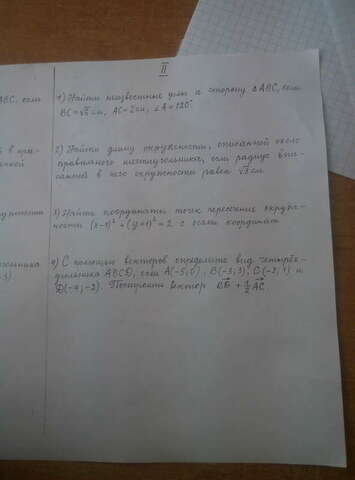 АВС, если
II
1) Найти неизвестные углы и сторону ΔАВС, если
АС = 2см, ∠А = 120°
2) Найти длину окружности, описанной около
правильного шестиугольника, если радиус впи-
санной в него окружности равен √3 см
3) Найти координаты точек пересечения окруж-
ности (x-1)² + (y+1)² = 2 с осями координат.
4) С помощью векторов определите вид четырёх-
угольника ABCD, если В(-3; 3), С(-2; 1) и
D(-4; -2). Постройте вектор + ½AC